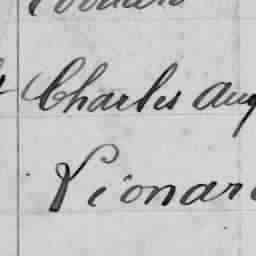 Charles Aug
Léonar